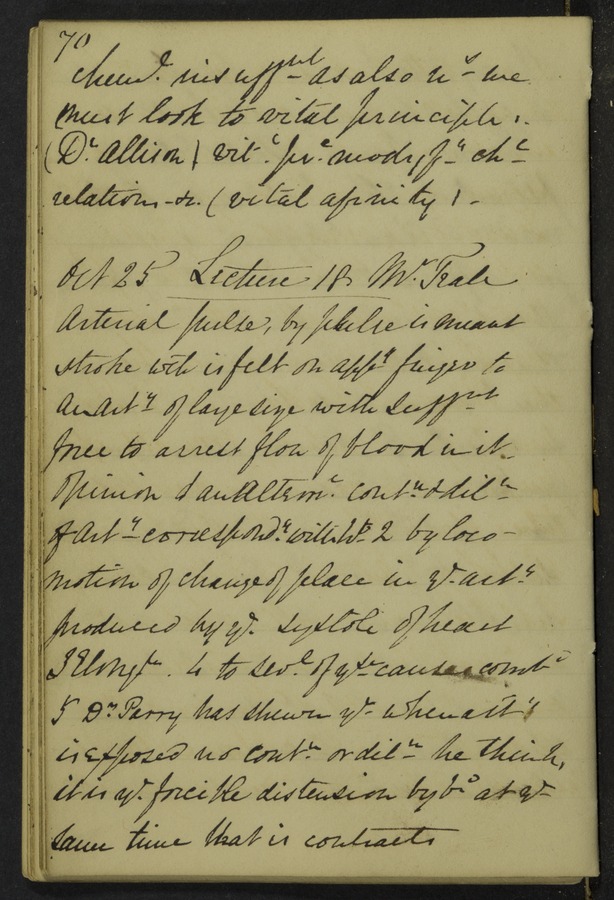 70
chem.l insuff.nt as also n.s we
must look to vital principle :.
(Dr. Allison) vit.l pr.e modyf.g ch.l
relations - &c. (vital afinity) -
Oct 25 Lecture 18 Mr. Teale
Arterial pulse, by pulse is meant
stroke wch is felt on app.g finger to
an art.y of large size with suff.nt
force to arrest flow of blood in it
opinion 1 an altern.e cont.n & dil.n
of art.y correspond.g with 2 by loco-
motion of change of place in ye art.y
produced by ye. systole of heart
3 Elong.n . 4 to sev.l of yse causes comb.d
5 Dr Parry has shewn yt when art.y
is exposed no cont.n or dil.n he thinks
it is ye. forcible distension by b.d at ye
same time that it contracts